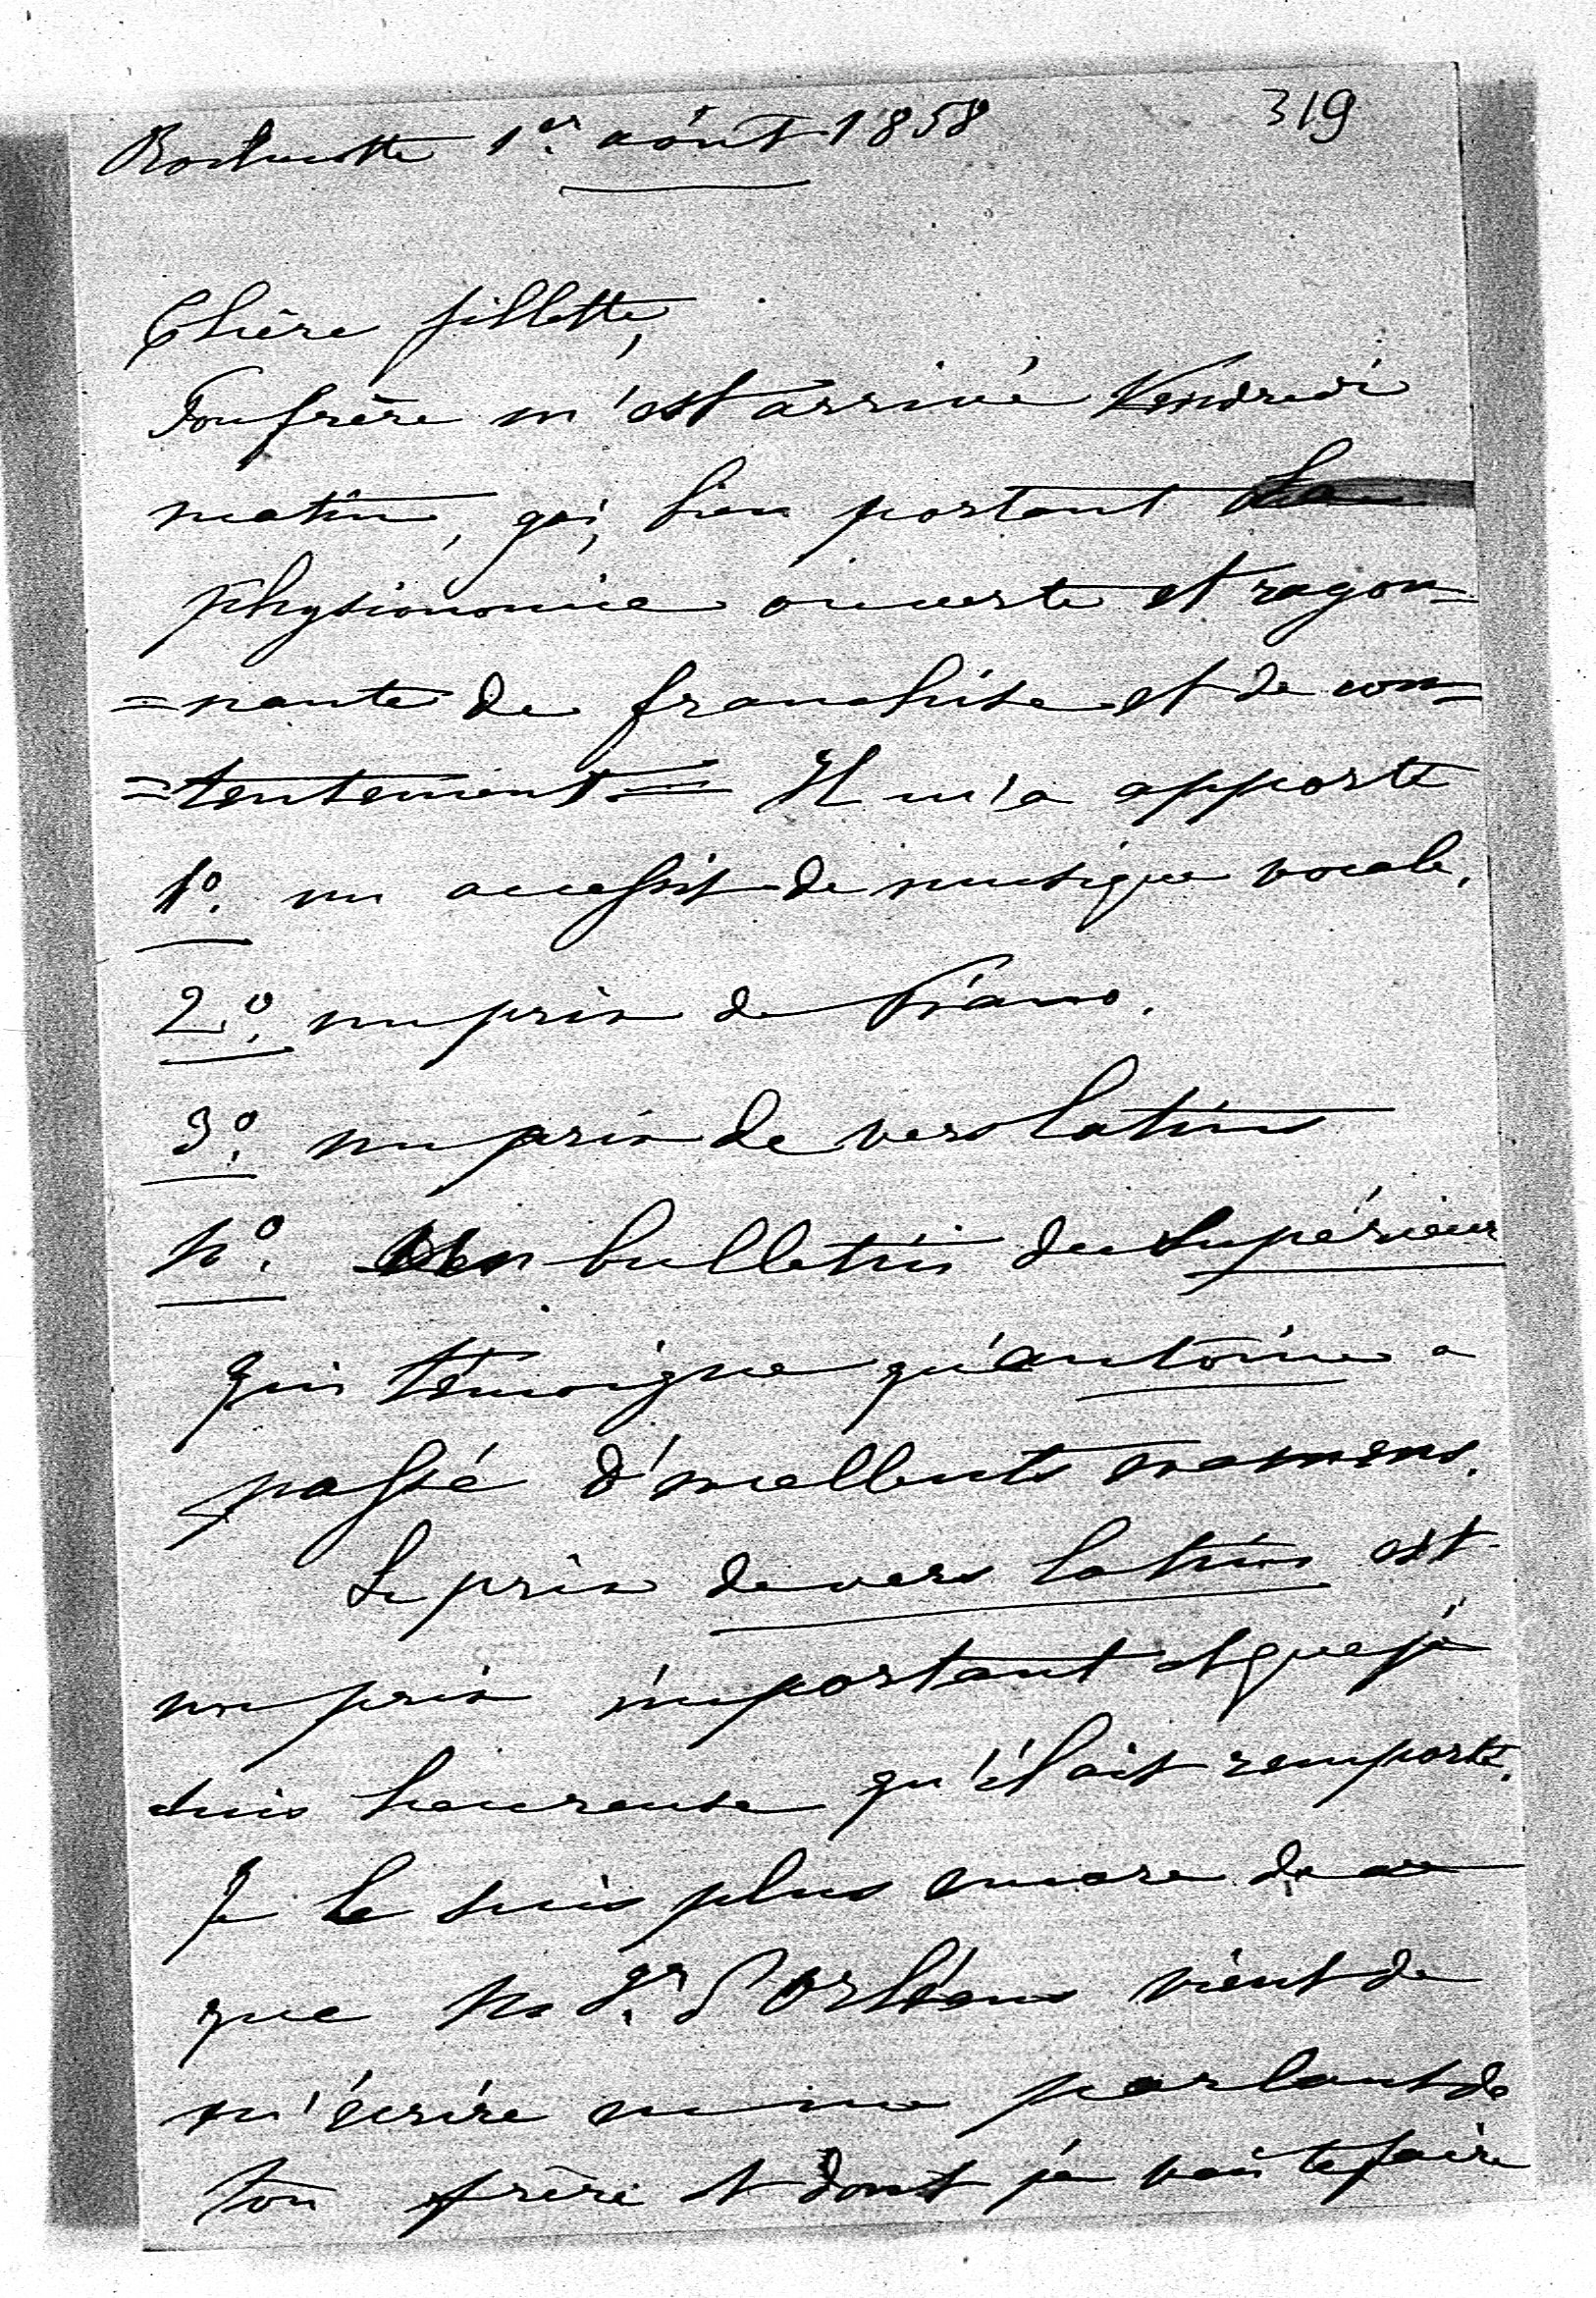 Rochecotte 1er. août 1858 319
Chère fillette,
Ton frère m'est arrivé Vendredi
matin, gai, bien portant la
physionomie ouverte et rayon=
=nante de franchise et de con=
=tentement = Il m'a apporté
1o. un accessit de musique vocale.
2o. un prix de Piano.
3o. un prix de vers latins
4o. Un bulletin du Supérieur
qui témoigne qu'antoine a
passé d'excellents examens.
Le prix de vers latins est
un prix important et que je
suis heureuse qu'il ait remporté.
Je le suis plus encore de ce
que Mgr. d'Orléans vient de
m'écrire en me parlant de
ton frère et dont je vais te faire